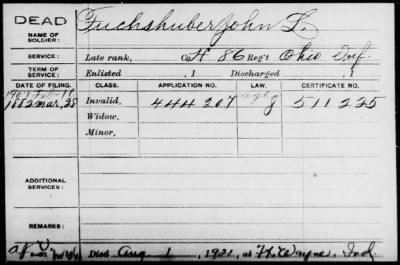 DEAD
NAME OF SOLDIER: Fuchshuber, John L.
SERVICE: Late rank, Co H 86 Reg't Ohio Inf.
TERM OF SERVICE: Enlisted , 1 Discharged , 1
DATE OF FILING. CLASS. APPLICATION NO. LAW. CERTIFICATE NO.
1882 Mar, 28 Invalid, 444 207 g 511225
Widow,
Minor,
ADDITIONAL SERVICES:
REMARKS:
Died Aug 1, 1921, at Ft. Wayne, Ind